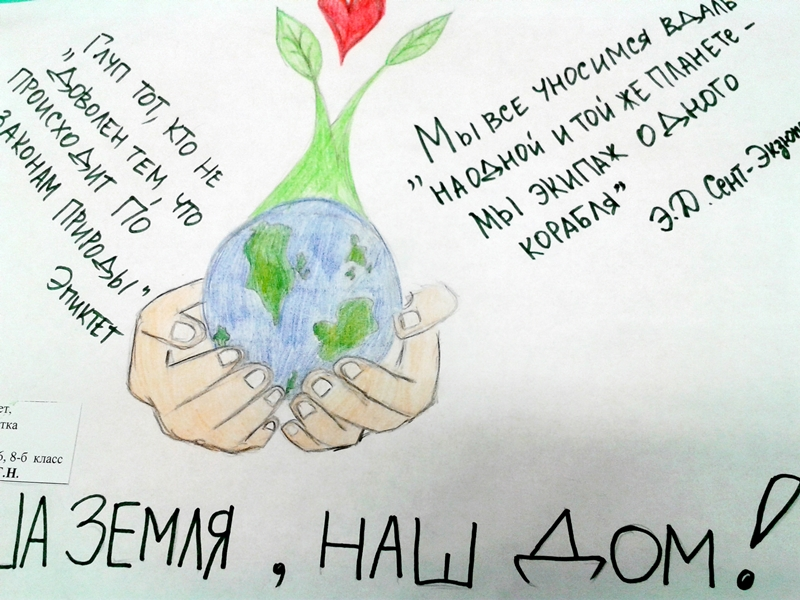 Глуп тот, кто не
"доволен тем, что
происходит по
законам природы"
Эпиктет
Мы все уносимся вдаль
"на одной и той же планете -
мы экипаж одного
корабля"
Э.Д. Сент-Экзюп
ет,
тка
б, 8-б класс
Г.Н.
ША ЗЕМЛЯ, НАШ ДОМ!